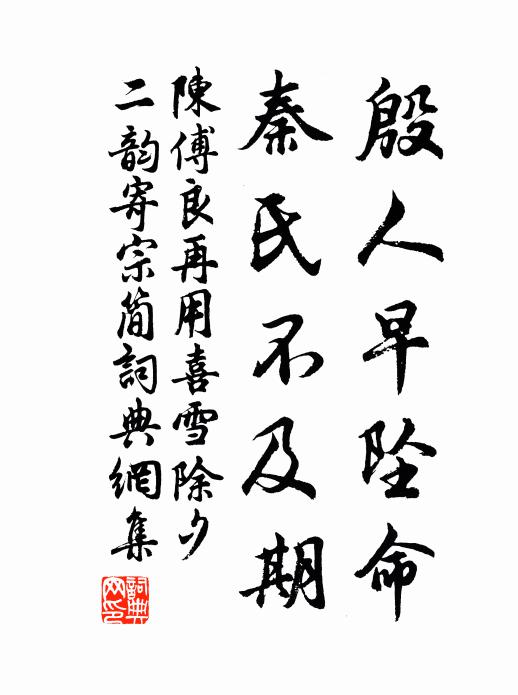 殷人早坠命
秦氏不及期
陳傅良再用喜雪除夕
二韵寄宗简詞典網集
詞典網印